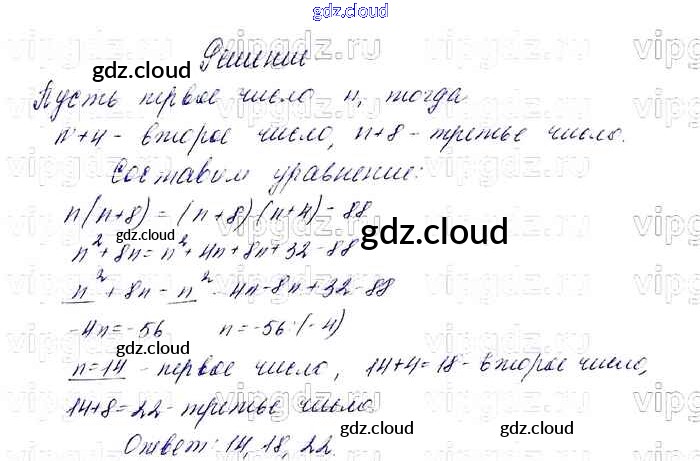 gdz.cloud
Решение
Пусть первое число n, тогда
n+4 - второе число, n+8 - третье число.
Составим уравнение:
n(n+8) = (n+8)(n+4) - 88
n² + 8n = n² + 4n + 8n + 32 - 88
n² + 8n - n² - 4n - 8n + 32 - 88
-4n = -56 n = -56 : (-4)
n = 14 - первое число, 14+4=18 - второе число,
14+8=22 - третье число.
Ответ: 14, 18, 22.
gdz.cloud
gdz.cloud
gdz.cloud
gdz.cloud
gdz.cloud
gdz.cloud
gdz.cloud
gdz.cloud
vipgdz.ru